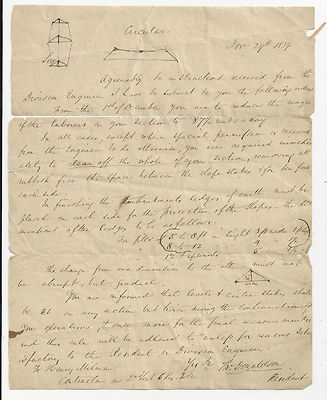 Circular
Nov 29th 1839
Agreeably to instructions received from the
Division Engineer I have to submit to you the following orders
From the 1st of December you are to reduce the wages
of the laborers on your section to 87½ cents a day
In all cases, except where special permission is received
from the Engineer to do otherwise, you are required immedi
ately to clear off the whole of your section, removing all
rubbish from the space between the slope stakes & for ten feet
each side.
In finishing the embankments ledges of earth must be
placed on each side for the protection of the slopes. the di
mentions of the ledges to be as follows
In fills 5 to 8 ft in hight 3 ft wide
8 to 12 4
12 & upwards 6
The change from one dimension to the other must not
be abrupt, but gradual.
You are informed that levels & centre stakes shall
be set on any section but twice during the continuation of
your operations & once more for the final measurement
and this rule will be adhered to except for reasons satis
factory to the Resident or Division Engineer.
To Henry Millman
Contractor on
Yrs &c Th. Donaldson
Resident